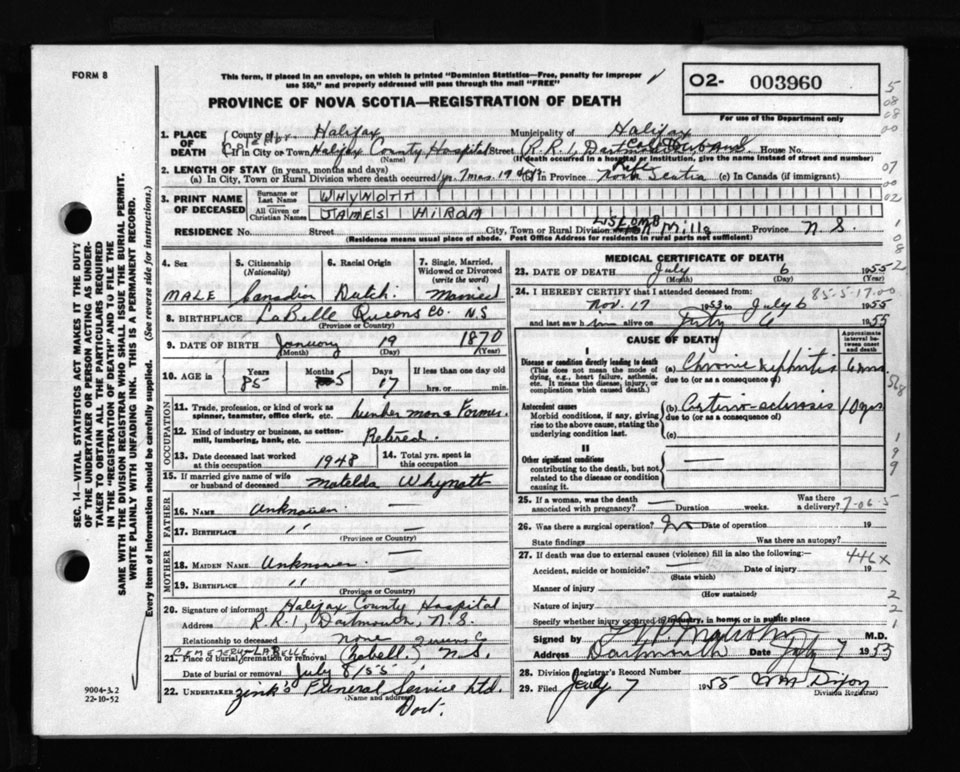 FORM 8
This form, if placed in an envelope, on which is printed "Dominion Statistics—Free, penalty for improper
use $50," and properly addressed will pass through the mail "FREE"
O2- 003960
For use of the Department only
PROVINCE OF NOVA SCOTIA—REGISTRATION OF DEATH
1. PLACE OF DEATH
County of Halifax Municipality of Halifax
If in City or Town Halifax County Hospital Street R.R.1, Dartmouth House No.
(Name) (If death occurred in a hospital or institution, give the name instead of street and number)
2. LENGTH OF STAY (in years, months and days)
(a) In City, Town or Rural Division where death occurred 1 yr. 7 mos. 19 days (b) In Province Nova Scotia (c) In Canada (if immigrant)
3. PRINT NAME OF DECEASED
Surname or Last Name WHYNOTT
All Given or Christian Names JAMES HIRAM
RESIDENCE No. Street City, Town or Rural Division Mills Province N.S.
(Residence means usual place of abode. Post Office Address for residents in rural parts not sufficient)
4. Sex MALE
5. Citizenship (Nationality) Canadian
6. Racial Origin Dutch
7. Single, Married, Widowed or Divorced (write the word) Married
8. BIRTHPLACE LaBelle Queens Co. N.S
(Province or Country)
9. DATE OF BIRTH January 19 1870
(Month) (Day) (Year)
10. AGE in Years 85 Months 5 Days 17 If less than one day
hrs. or min.
OCCUPATION
11. Trade, profession, or kind of work as spinner, teamster, office clerk, etc. Lumberman & Farmer.
12. Kind of industry or business, as cotton-mill, lumbering, bank, etc. Retired.
13. Date deceased last worked at this occupation 1948
14. Total yrs. spent in this occupation
15. If married give name of wife or husband of deceased Matelda Whynott
FATHER
16. NAME Unknown
17. BIRTHPLACE "
(Province or Country)
MOTHER
18. MAIDEN NAME Unknown
19. BIRTHPLACE "
(Province or Country)
20. Signature of informant Halifax County Hospital
Address R.R.1, Dartmouth, N.S.
Relationship to deceased none
CEMETERY-LABELLE Queens Co
21. Place of burial, cremation or removal (Labelle) N.S.
Date of burial or removal July 8/55
22. UNDERTAKER Zink's Funeral Service Ltd.
(Name and address) Dart.
MEDICAL CERTIFICATE OF DEATH
23. DATE OF DEATH July 6 1955
(Month) (Day)
24. I HEREBY CERTIFY that I attended deceased from: 85-5-17.00
Nov. 17 1953 to July 6 1955
and last saw him alive on July 6 1955
CAUSE OF DEATH
Approximate interval between onset and death
I
Disease or condition directly leading to death
(This does not mean the mode of dying, e.g., heart failure, asthenia, etc. It means the disease, injury, or complication which caused death.)
(a) Chronic Nephritis 6 mos.
due to (or as a consequence of)
Antecedent causes
Morbid conditions, if any, giving rise to the above cause, stating the underlying condition last.
(b) Arterio-sclerosis 10 yrs
due to (or as a consequence of)
(c)
II
Other significant conditions
contributing to the death, but not related to the disease or condition causing it.
25. If a woman, was the death associated with pregnancy? Duration weeks. Was there a delivery? 7-06-5
26. Was there a surgical operation? No Date of operation 19
State findings Was there an autopsy?
27. If death was due to external causes (violence) fill in also the following:—
446X
Accident, suicide or homicide? Date of injury 19
(State which)
Manner of injury
(How sustained)
Nature of injury
Specify whether injury occurred in industry, in home, or in public place
Signed by M.D.
Address Dartmouth Date July 7 1955
28. Division Registrar's Record Number
29. Filed July 7 1955 Wm Dixon
Division Registrar
9004-3.2
22-10-52
SEC. 14—VITAL STATISTICS ACT MAKES IT THE DUTY
OF THE UNDERTAKER OR PERSON ACTING AS UNDER-
TAKER TO OBTAIN ALL THE PARTICULARS REQUIRED
IN THE "REGISTRATION OF DEATH" AND TO FILE THE
SAME WITH THE DIVISION REGISTRAR WHO SHALL ISSUE THE BURIAL PERMIT.
WRITE PLAINLY WITH UNFADING INK. THIS IS A PERMANENT RECORD.
Every item of information should be carefully supplied. (See reverse side for instructions.)